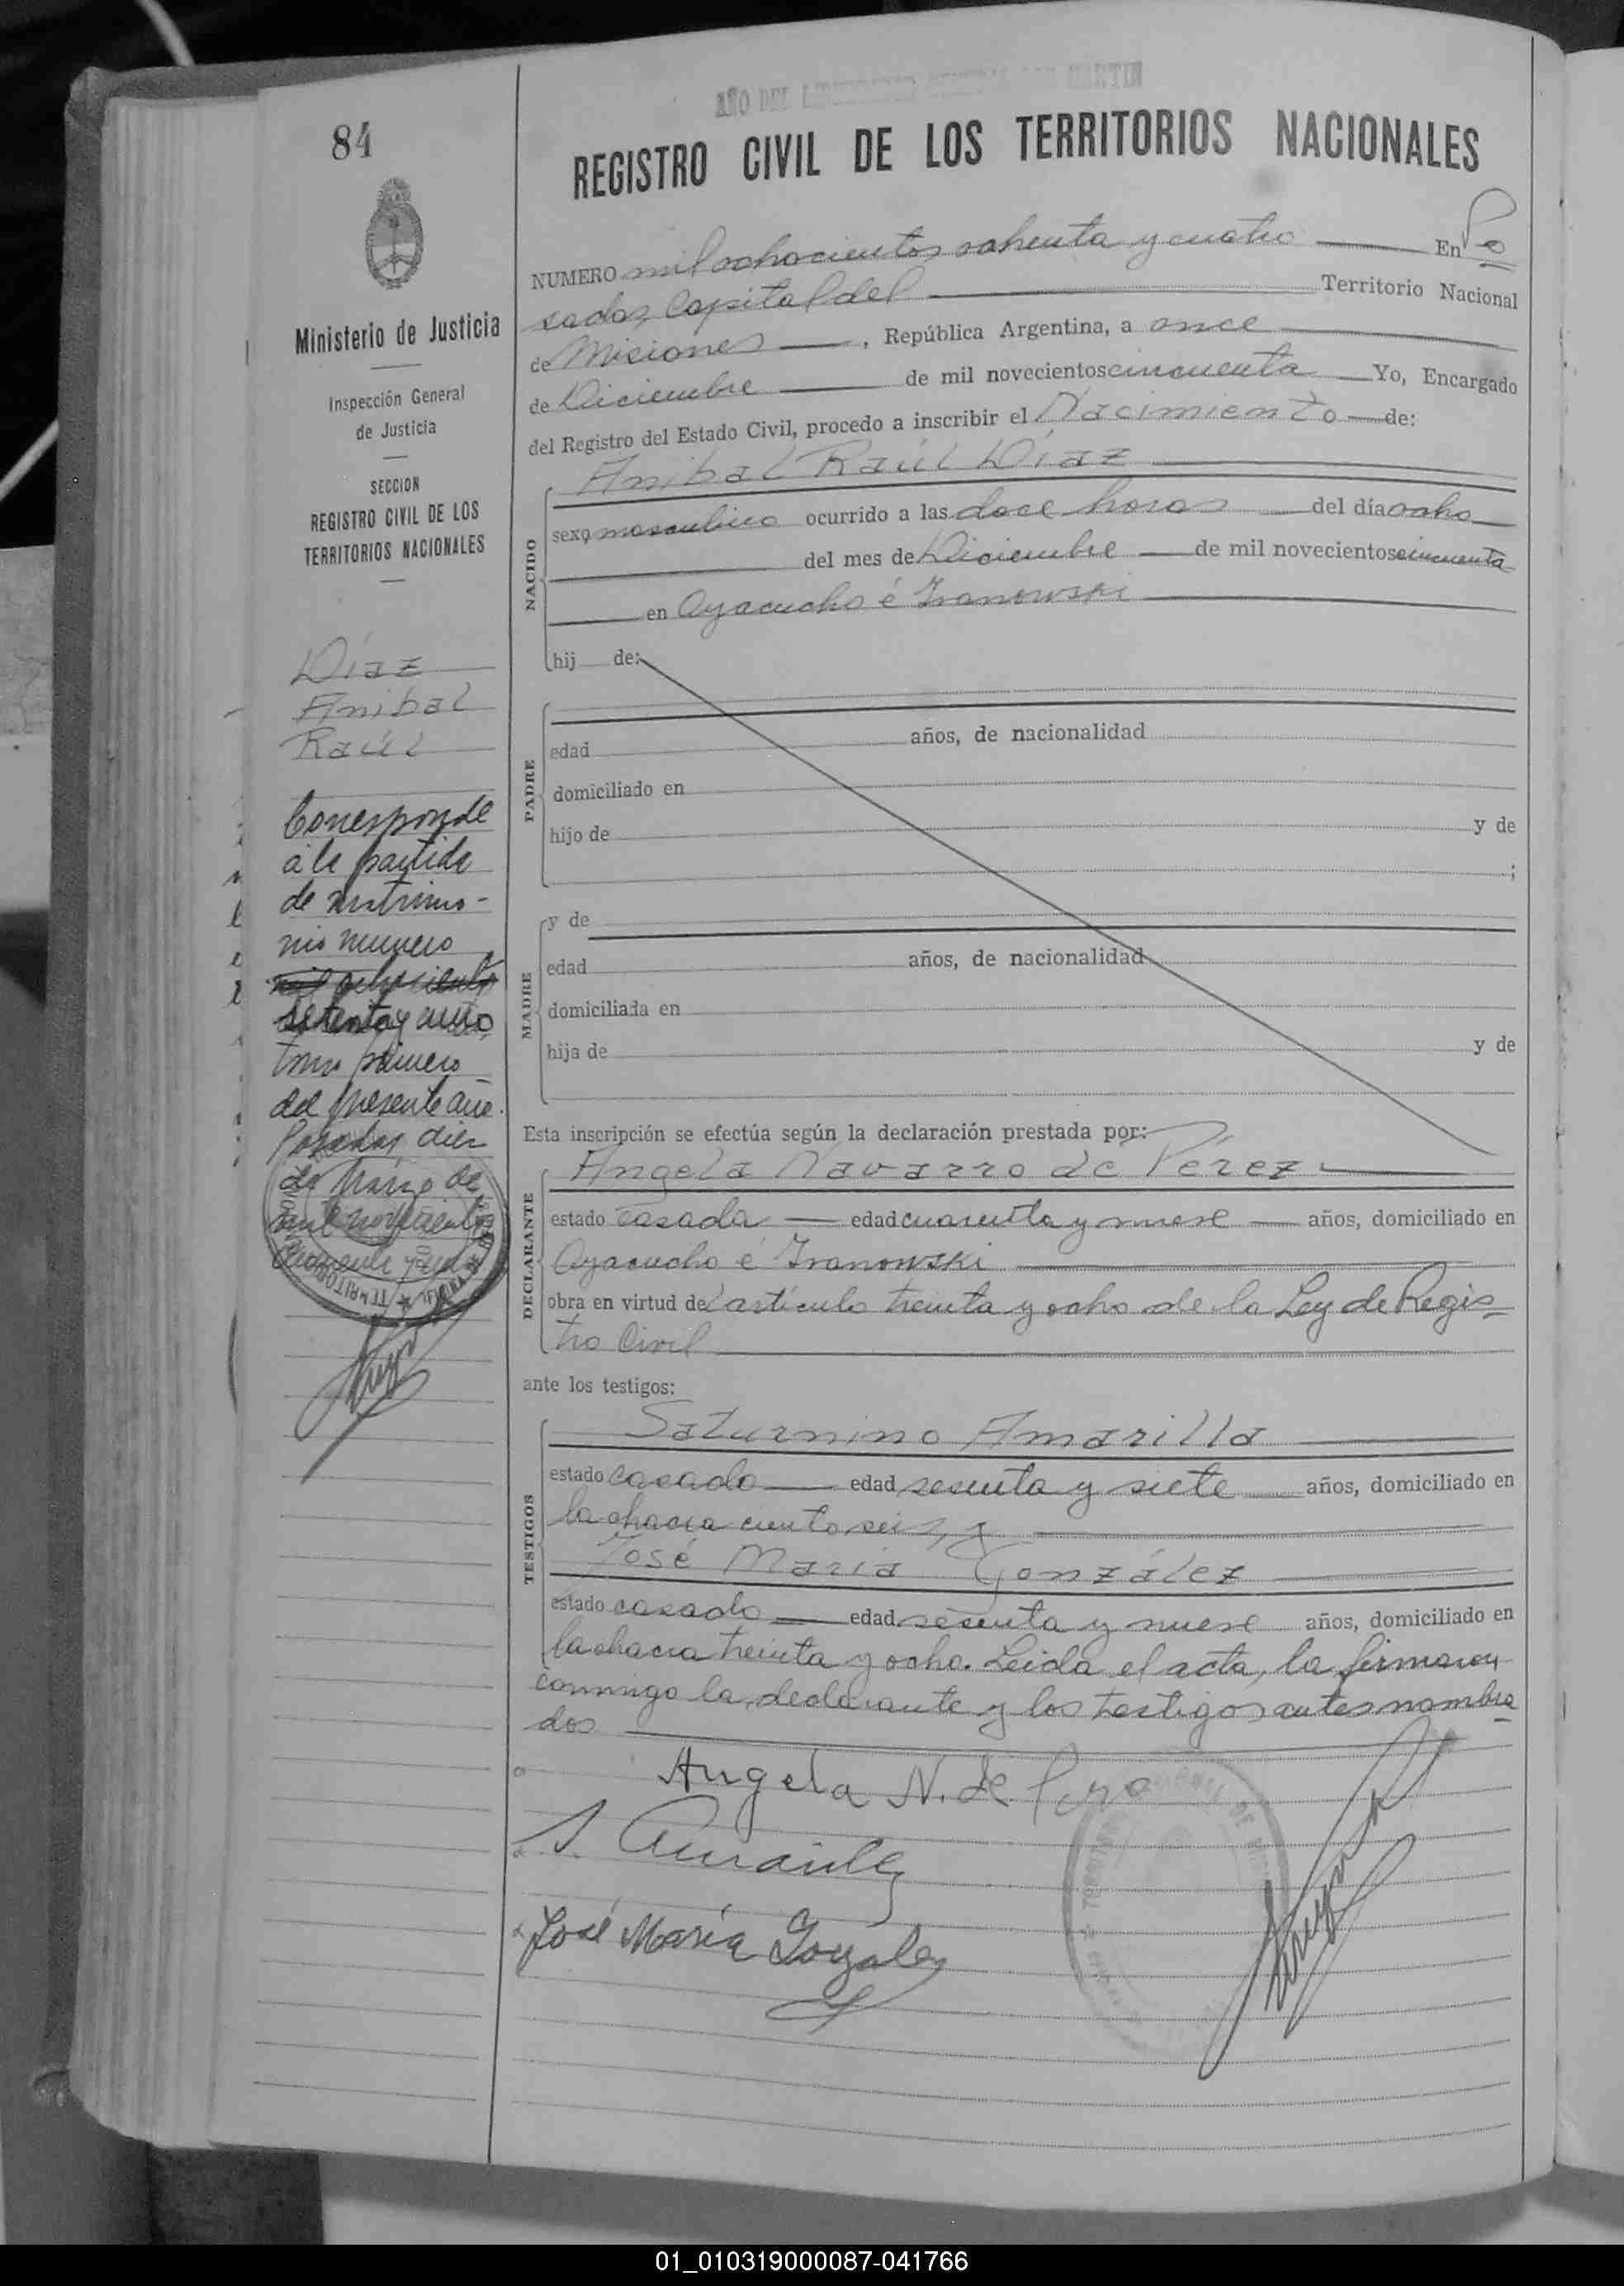 84
Ministerio de Justicia
Inspección General
de Justicia
SECCION
REGISTRO CIVIL DE LOS
TERRITORIOS NACIONALES
Díaz
Anibal
Raúl
Corresponde
a la partida
de matrimo-
nio numero
mil ochocientos
setenta y cuatro,
tomo primero
del presente año.
Posadas, diez
de Marzo de
mil novecientos
cincuenta y uno
AÑO DEL LIBERTADOR GENERAL SAN MARTIN
REGISTRO CIVIL DE LOS TERRITORIOS NACIONALES
NUMERO mil ochocientos ochenta y cuatro En Po
sadas, Capital del Territorio Nacional
de Misiones, República Argentina, a once
de Diciembre de mil novecientos cincuenta Yo, Encargado
del Registro del Estado Civil, procedo a inscribir el Nacimiento de:
Anibal Raúl Díaz
NACIDO
sexo masculino ocurrido a las doce horas del día ocho
del mes de Diciembre de mil novecientos cincuenta
en Ayacucho é Iranowski
hij de:
PADRE
edad años, de nacionalidad
domiciliado en
hijo de y de
;
MADRE
y de
edad años, de nacionalidad
domiciliada en
hija de y de
Esta inscripción se efectúa según la declaración prestada por:
Angela Navarro de Pérez
DECLARANTE
estado casada edad cuarenta y nueve años, domiciliado en
Ayacucho é Iranowski
obra en virtud del artículo treinta y ocho de la Ley de Regis-
tro Civil
ante los testigos:
Saturnino Amarilla
TESTIGOS
estado casado edad sesenta y siete años, domiciliado en
la chacra ciento seis, y
José María González
estado casado edad sesenta y nueve años, domiciliado en
la chacra treinta y ocho. Leida el acta, la firmaron
conmigo la declarante y los testigos antes nombra
dos
Angela N. de Perez
S. Amarilla
José María Gonzalez
01_010319000087-041766